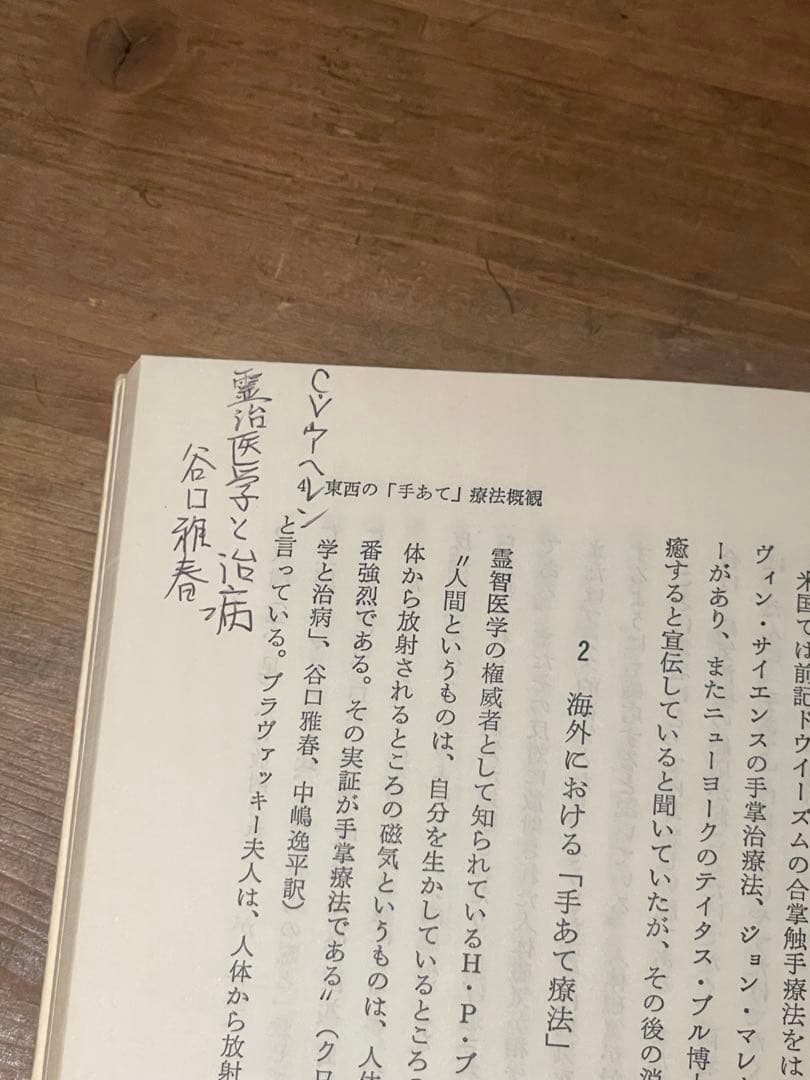 4 東西の「手あて」療法概観
米国では前記ドウイーズムの合掌触手療法をは
ヴィン・サイエンスの手掌治療法、ジョン・マレ
ーがあり、またニューヨークのテイタス・ブル博
癒すると宣伝していると聞いていたが、その後の消
2 海外における「手あて療法」
霊智医学の権威者として知られているH・P・ブ
〝人間というものは、自分を生かしているところの
体から放射されるところの磁気というものは、人体
番強烈である。その実証が手掌療法である〟(クロ
学と治病」、谷口雅春、中嶋逸平訳)
と言っている。ブラヴァッキー夫人は、人体から放射
C.V.
ヘレン
霊治医学と治病
谷口雅春